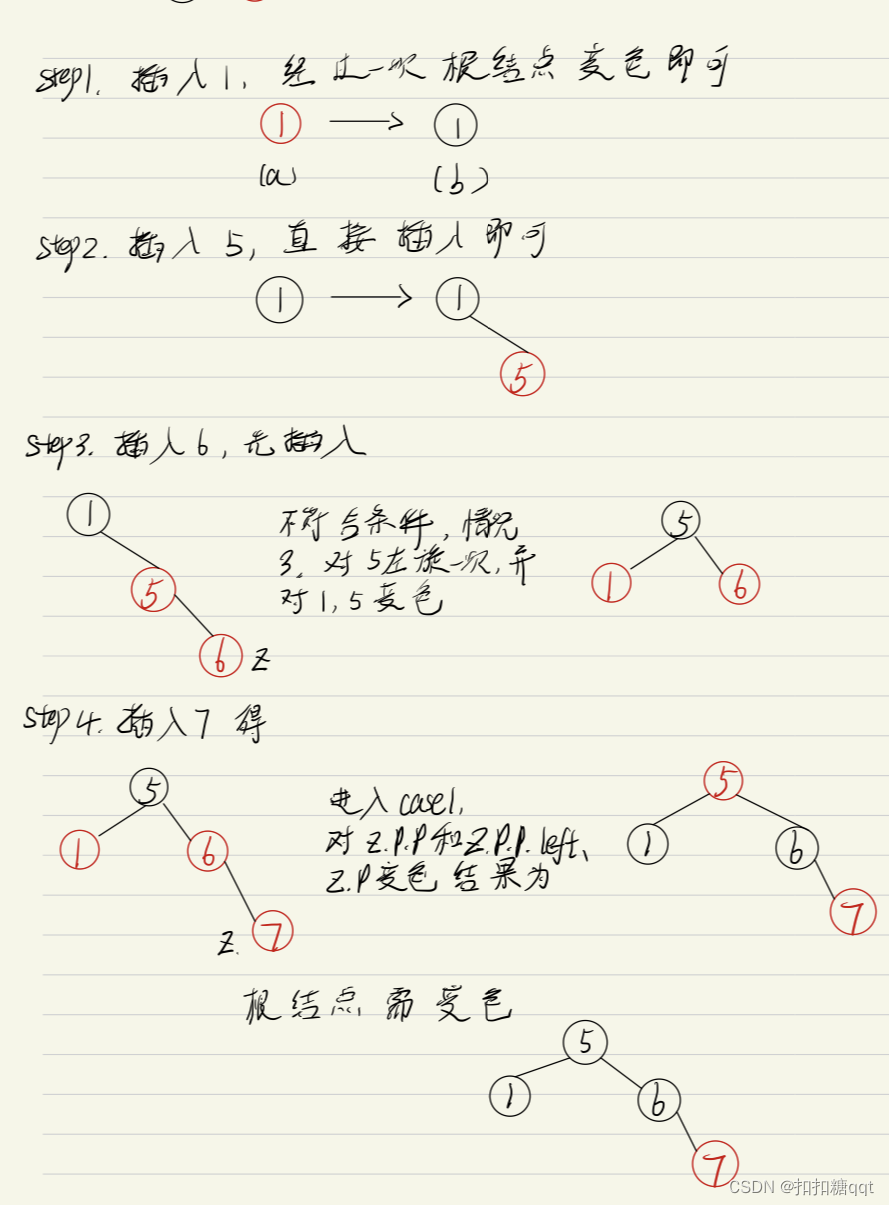 Step1. 插入1, 经过一次 根结点 变色即可
1 1
(a) (b)
Step2. 插入 5, 直接 插入即可
1 1
5
Step3. 插入6, 先插入
1 不符合条件, 情况 5
5 3. 对5左旋一次, 并 1 6
对1,5变色
6 z
Step4. 插入7 得
5 进入case1, 5
1 6 对z.p.p和z.p.p.left、 1 6
z.p变色 结果为
z. 7 7
根结点需变色
5
1 6
7
CSDN @扣扣糖qqt